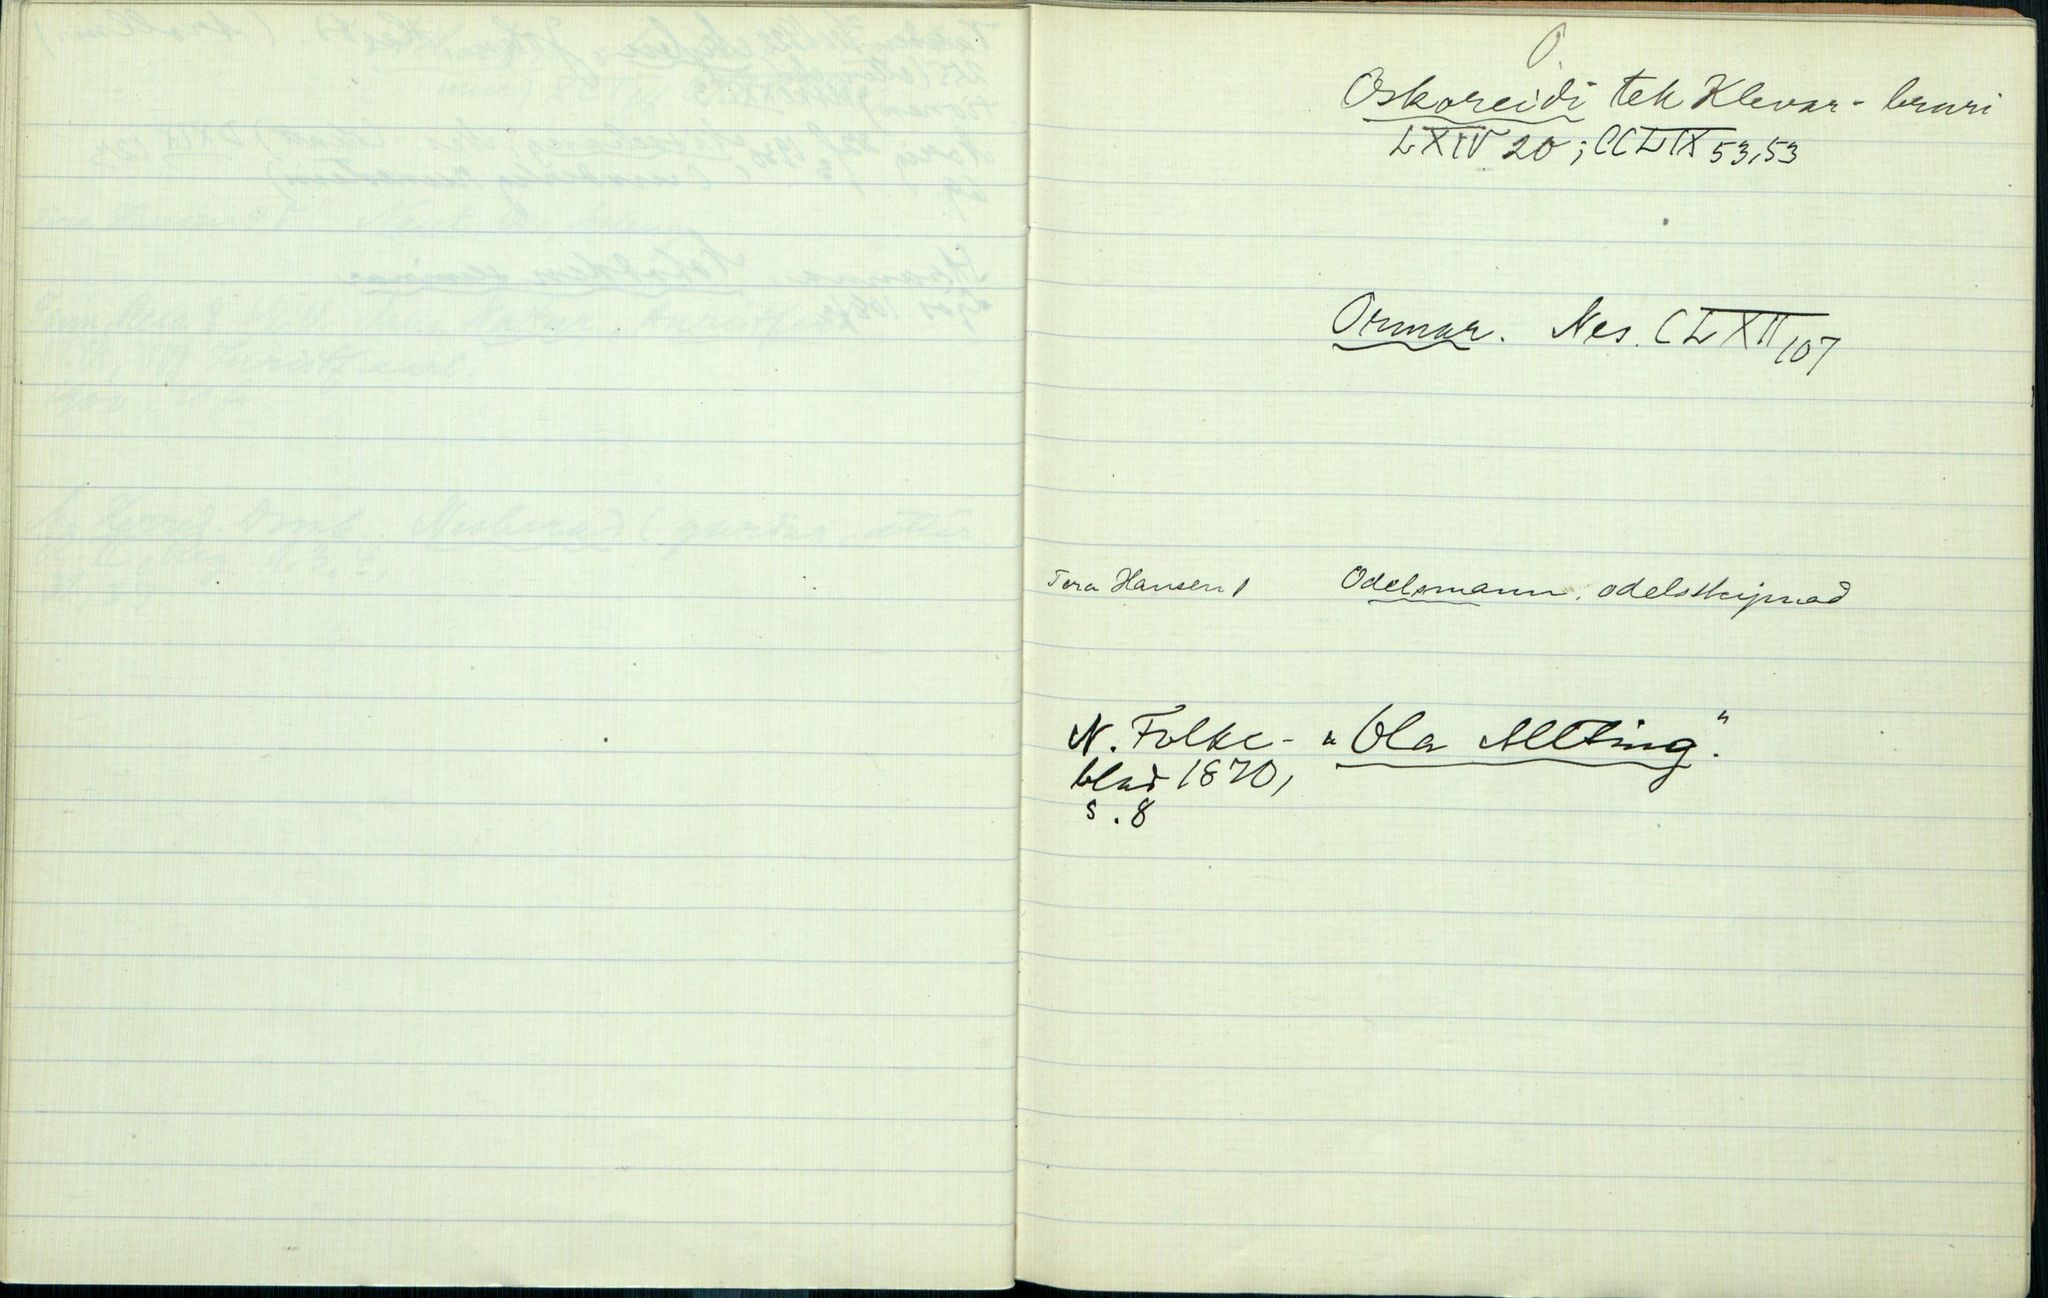 O.
Oskoreidi tek Klevar-bruri
LXIV 20; CCLIX 53,53
Ormar. Nes. CLXII 107
Tora Hansen 1 Odelsmann, odelsskipnad
N. Folke- "Ola Alting".
blad 1870,
s. 8